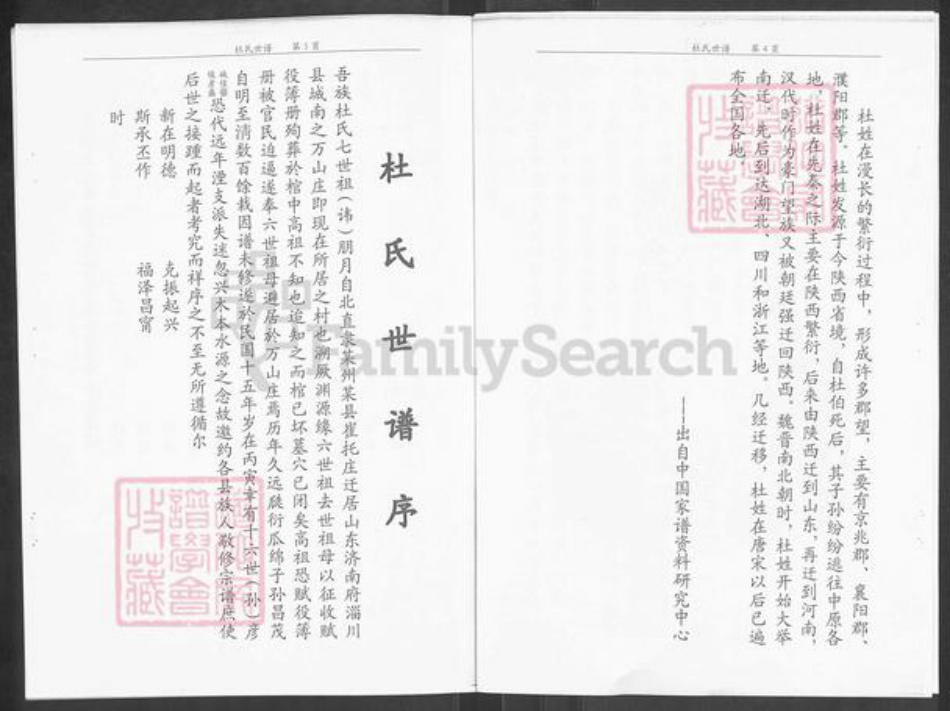 杜氏世谱 第4页
杜姓在漫长的繁衍过程中，形成许多郡望，主要有京兆郡、襄阳郡、
濮阳郡等。杜姓发源于今陕西省境，自杜伯死后，其子孙纷纷逃往中原各
地，杜姓在先秦之际主要在陕西繁衍，后来由陕西迁到山东，再迁到河南，
汉代时作为豪门望族又被朝廷强迁回陕西。魏晋南北朝时，杜姓开始大举
南迁，先后到达湖北、四川和浙江等地。几经迁移，杜姓在唐宋以后已遍
布全国各地。
——出自中国家谱资料研究中心
杜氏世谱 第5页
杜氏世谱序
吾族杜氏七世祖（讳）朋月自北直隶莱州莱县崔托庄迁居山东济南府淄川
县城南之万山庄即现在所居之村也溯厥渊源缘六世祖去世祖母以征收赋
役簿册殉葬於棺中高祖不知也迨知之而棺已坏墓穴已闭矣高祖恐赋役簿
册被官民迫逼遂奉六世祖母避居於万山庄焉历年久远瓞衍瓜绵子孙昌茂
自明至清数百馀栽因谱未修遂於民国十五年岁在丙寅幸有十六世（孙）彦
恐代远年湮支派失迷忽兴木本水源之念故邀约各县族人敬修宗谱庶使
后世之接踵而起者考究而祥序之不至无所遵循尔
新在明德 克振起兴
斯承丕作 福泽昌甯
时
FamilySearch
譜學會
收藏